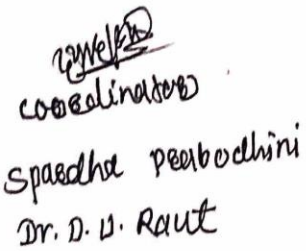 coordinator
Spardha Prabodhini
Dr. D. U. Raut